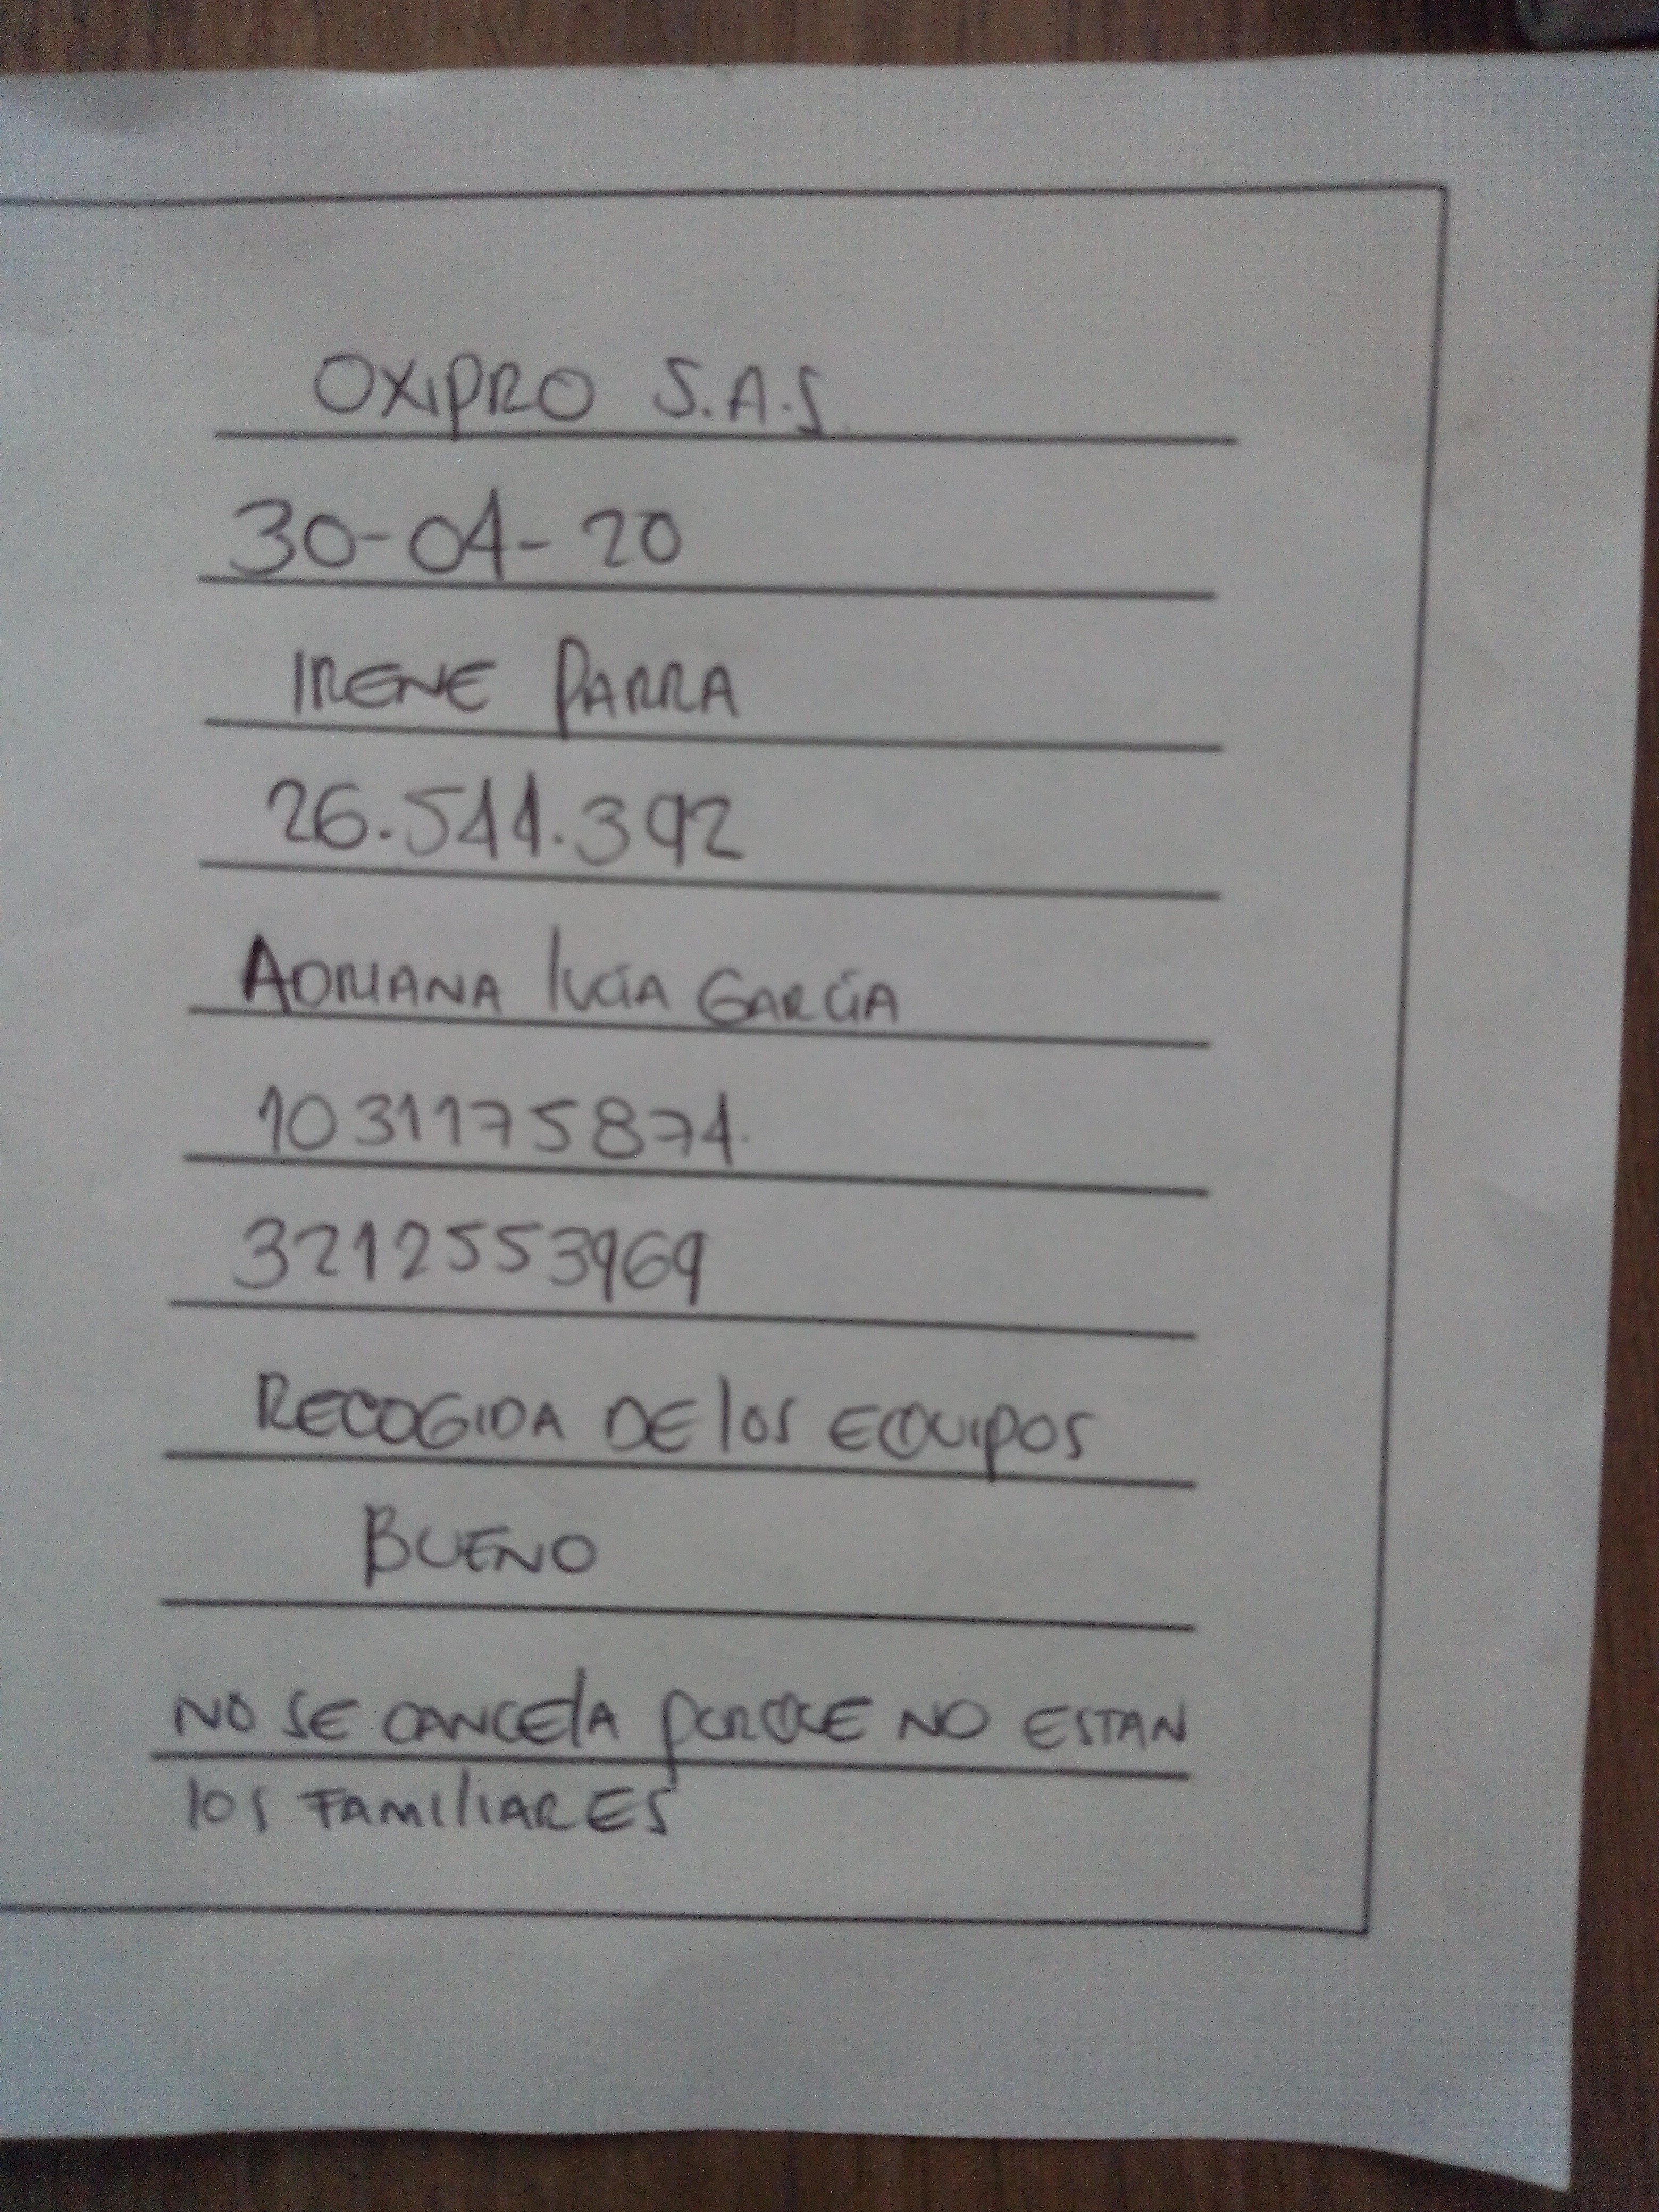 OXIPRO S.A.S.
30-04-20
IRENE PARRA
26.511.392
ADRIANA lUCÍA GARCÍA
1031175874.
3212553969
RECOGIDA DE lOS EQUIPOS
BUENO
NO SE CANCElA PORQUE NO ESTAN
lOS FAMIlIARES